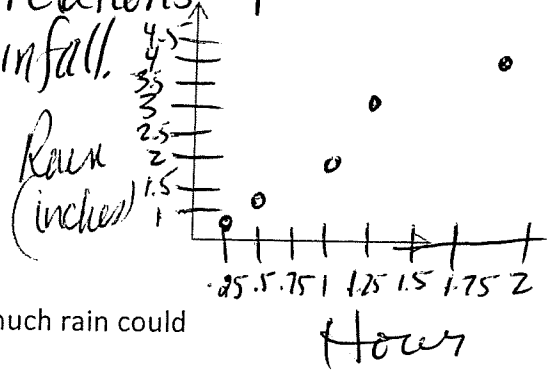 infall.
Rain
(inches)
4.5
4
3.5
3
2.5
2
1.5
1
.25 .5 .75 1 1.25 1.5 1.75 2
Hour
much rain could